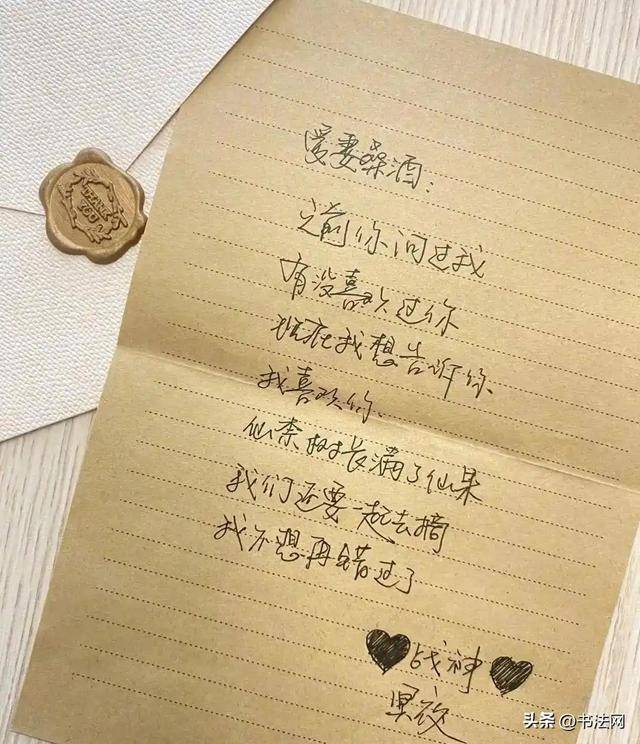 爱妻桑酒：
之前你问过我
有没喜欢过你
现在我想告诉你
我喜欢你
仙柰树长满了仙果
我们还要一起去摘
我不想再错过了
战神
冥夜
头条@书法网